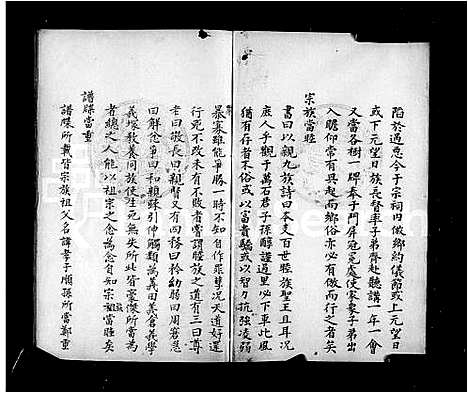 陷於過惡今于宗祠內倣鄉約儀節或上元望日
或下元望日族長督率子弟齊赴聽講一年一會
又當各樹一牌奉于門屏冠冕處使家衆子弟出
入瞻仰常有興起而鄉俗亦必有倣而行之者矣
宗族當睦
書曰以親九族詩曰本支百世睦族聖王且耳况
庶人乎觀于萬石君子孫醇謹過里必下車此風
猶有存者不俗或以富者驕或以智力抗強凌弱
暴寡雖能爭勝一時不知自作罪孽况天道好還
行兇不改未有不敗者嘗謂睦族之道有三曰尊
老曰敬長曰親賢又有四務曰矜幼弱曰周窘急
曰解忿爭曰和親睦引伸觸類為義田義倉義學
義塚教養同族使生死無失所此皆豪傑所當為
者總之人能以祖宗之念為念自知宗族當睦矣
譜牒當重
譜牒所載皆宗族祖父名諱孝子順孫所當鄭重